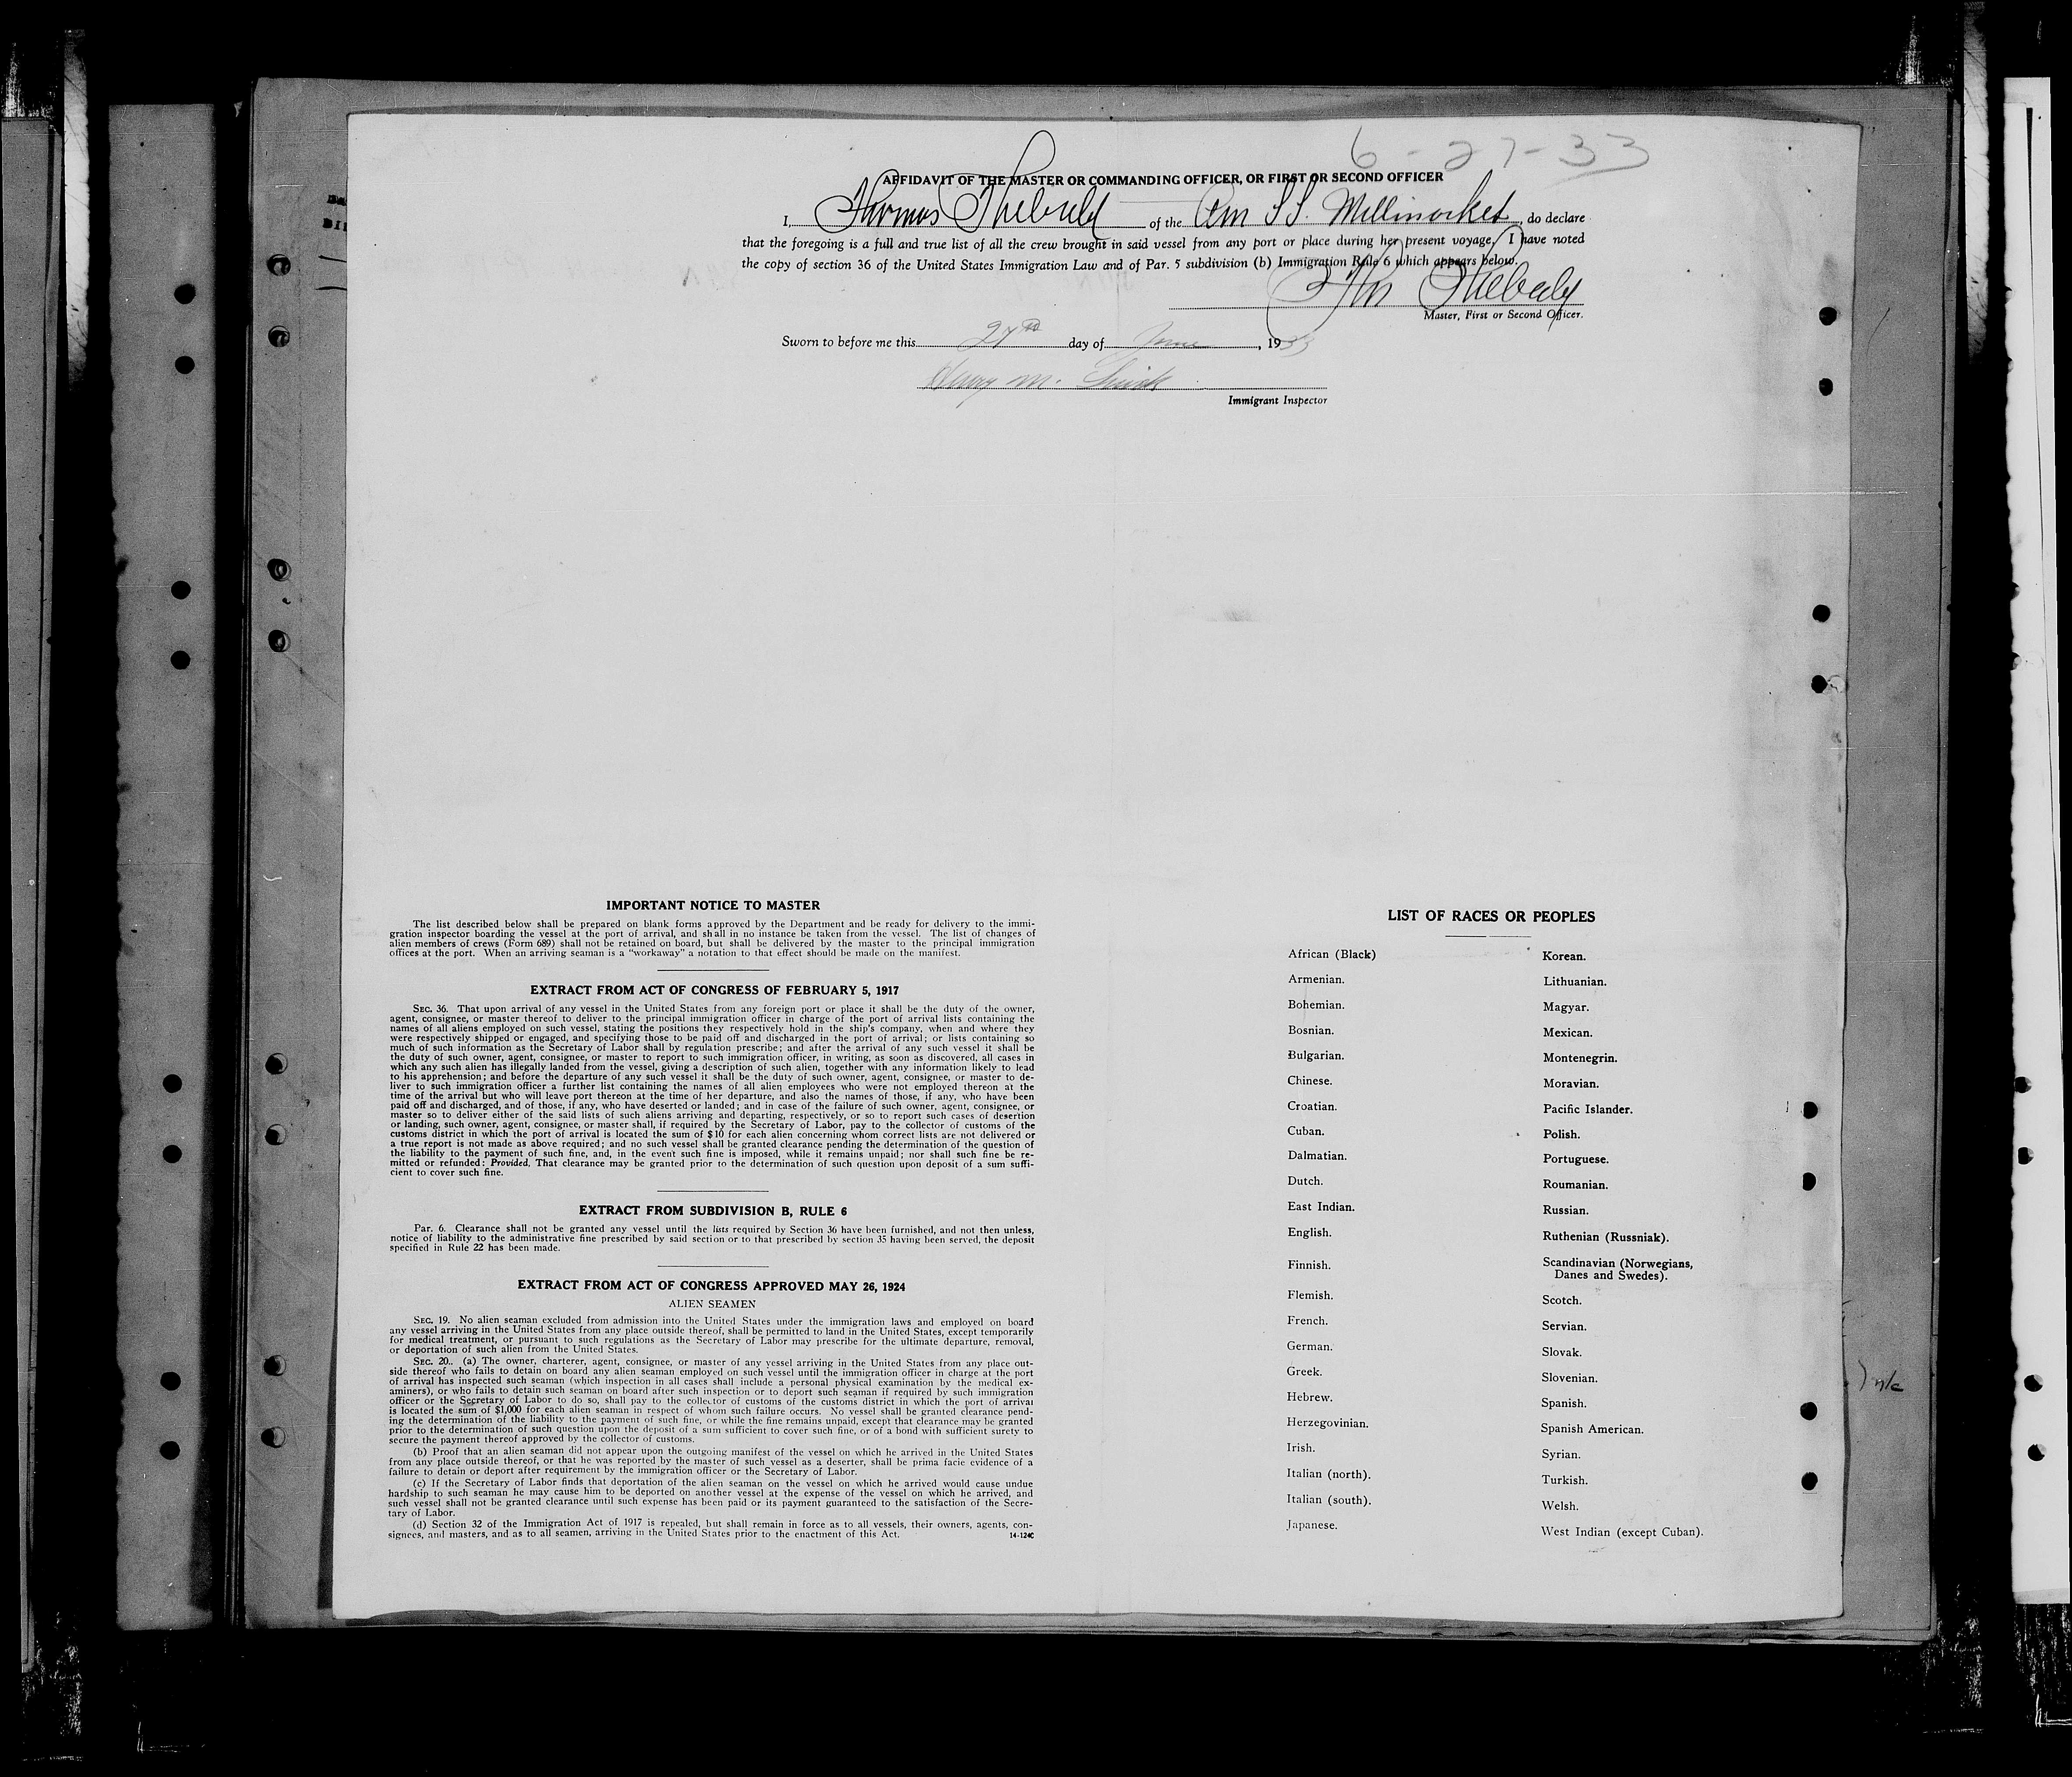 6-27-33
AFFIDAVIT OF THE MASTER OR COMMANDING OFFICER, OR FIRST OR SECOND OFFICER
I, Thomas of the Am S.S. Millinocket, do declare
that the foregoing is a full and true list of all the crew brought in said vessel from any port or place during her present voyage. I have noted
the copy of section 36 of the United States Immigration Law and of Par. 5 subdivision (b) Immigration Rule 6 which appears below.
Master, First or Second Officer.
Sworn to before me this 27th day of June, 1933
Henry M.
Immigrant Inspector
IMPORTANT NOTICE TO MASTER
The list described below shall be prepared on blank forms approved by the Department and be ready for delivery to the immi-
gration inspector boarding the vessel at the port of arrival, and shall in no instance be taken from the vessel. The list of changes of
alien members of crews (Form 689) shall not be retained on board, but shall be delivered by the master to the principal immigration
offices at the port. When an arriving seaman is a "workaway" a notation to that effect should be made on the manifest.
EXTRACT FROM ACT OF CONGRESS OF FEBRUARY 5, 1917
SEC. 36. That upon arrival of any vessel in the United States from any foreign port or place it shall be the duty of the owner,
agent, consignee, or master thereof to deliver to the principal immigration officer in charge of the port of arrival lists containing the
names of all aliens employed on such vessel, stating the positions they respectively hold in the ship's company, when and where they
were respectively shipped or engaged, and specifying those to be paid off and discharged in the port of arrival; or lists containing so
much of such information as the Secretary of Labor shall by regulation prescribe; and after the arrival of any such vessel it shall be
the duty of such owner, agent, consignee, or master to report to such immigration officer, in writing, as soon as discovered, all cases in
which any such alien has illegally landed from the vessel, giving a description of such alien, together with any information likely to lead
to his apprehension; and before the departure of any such vessel it shall be the duty of such owner, agent, consignee, or master to de-
liver to such immigration officer a further list containing the names of all alien employees who were not employed thereon at the
time of the arrival but who will leave port thereon at the time of her departure, and also the names of those, if any, who have been
paid off and discharged, and of those, if any, who have deserted or landed; and in case of the failure of such owner, agent, consignee, or
master so to deliver either of the said lists of such aliens arriving and departing, respectively, or so to report such cases of desertion
or landing, such owner, agent, consignee, or master shall, if required by the Secretary of Labor, pay to the collector of customs of the
customs district in which the port of arrival is located the sum of $10 for each alien concerning whom correct lists are not delivered or
a true report is not made as above required; and no such vessel shall be granted clearance pending the determination of the question of
the liability to the payment of such fine, and, in the event such fine is imposed, while it remains unpaid; nor shall such fine be re-
mitted or refunded: Provided, That clearance may be granted prior to the determination of such question upon deposit of a sum suffi-
cient to cover such fine.
EXTRACT FROM SUBDIVISION B, RULE 6
Par. 6. Clearance shall not be granted any vessel until the lists required by Section 36 have been furnished, and not then unless,
notice of liability to the administrative fine prescribed by said section or to that prescribed by section 35 having been served, the deposit
specified in Rule 22 has been made.
EXTRACT FROM ACT OF CONGRESS APPROVED MAY 26, 1924
ALIEN SEAMEN
SEC. 19. No alien seaman excluded from admission into the United States under the immigration laws and employed on board
any vessel arriving in the United States from any place outside thereof, shall be permitted to land in the United States, except temporarily
for medical treatment, or pursuant to such regulations as the Secretary of Labor may prescribe for the ultimate departure, removal,
or deportation of such alien from the United States.
SEC. 20.. (a) The owner, charterer, agent, consignee, or master of any vessel arriving in the United States from any place out-
side thereof who fails to detain on board any alien seaman employed on such vessel until the immigration officer in charge at the port
of arrival has inspected such seaman (which inspection in all cases shall include a personal physical examination by the medical ex-
aminers), or who fails to detain such seaman on board after such inspection or to deport such seaman if required by such immigration
officer or the Secretary of Labor to do so, shall pay to the collector of customs of the customs district in which the port of arrival
is located the sum of $1,000 for each alien seaman in respect of whom such failure occurs. No vessel shall be granted clearance pend-
ing the determination of the liability to the payment of such fine, or while the fine remains unpaid, except that clearance may be granted
prior to the determination of such question upon the deposit of a sum sufficient to cover such fine, or of a bond with sufficient surety to
secure the payment thereof approved by the collector of customs.
(b) Proof that an alien seaman did not appear upon the outgoing manifest of the vessel on which he arrived in the United States
from any place outside thereof, or that he was reported by the master of such vessel as a deserter, shall be prima facie evidence of a
failure to detain or deport after requirement by the immigration officer or the Secretary of Labor.
(c) If the Secretary of Labor finds that deportation of the alien seaman on the vessel on which he arrived would cause undue
hardship to such seaman he may cause him to be deported on another vessel at the expense of the vessel on which he arrived, and
such vessel shall not be granted clearance until such expense has been paid or its payment guaranteed to the satisfaction of the Secre-
tary of Labor.
(d) Section 32 of the Immigration Act of 1917 is repealed, but shall remain in force as to all vessels, their owners, agents, con-
signees, and masters, and as to all seamen, arriving in the United States prior to the enactment of this Act.
14-1240
LIST OF RACES OR PEOPLES
African (Black)
Armenian.
Bohemian.
Bosnian.
Bulgarian.
Chinese.
Croatian.
Cuban.
Dalmatian.
Dutch.
East Indian.
English.
Finnish.
Flemish.
French.
German.
Greek.
Hebrew.
Herzegovinian.
Irish.
Italian (north).
Italian (south).
Japanese.
Korean.
Lithuanian.
Magyar.
Mexican.
Montenegrin.
Moravian.
Pacific Islander.
Polish.
Portuguese.
Roumanian.
Russian.
Ruthenian (Russniak).
Scandinavian (Norwegians,
Danes and Swedes).
Scotch.
Servian.
Slovak.
Slovenian.
Spanish.
Spanish American.
Syrian.
Turkish.
Welsh.
West Indian (except Cuban).